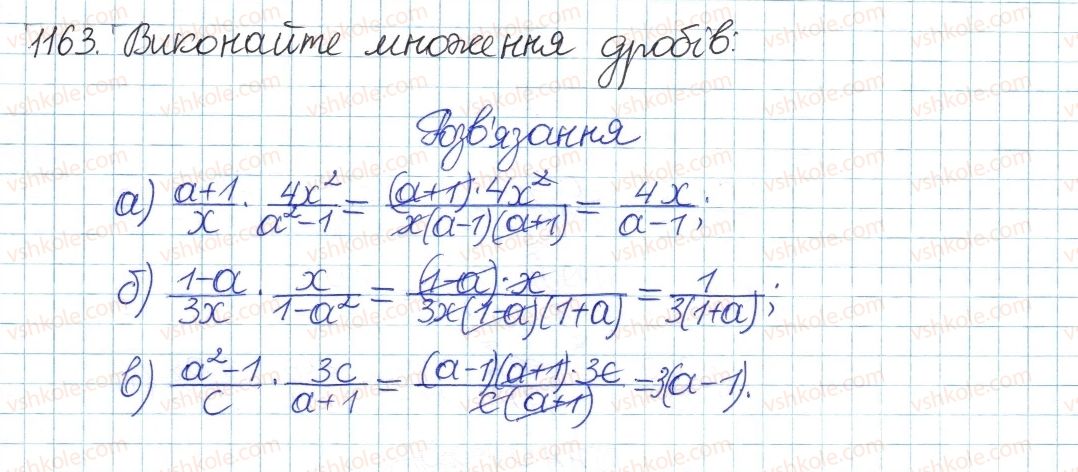 1163. Виконайте множення дробів:
Розв'язання
а) \frac{a+1}{x} \cdot \frac{4x^2}{a^2-1} = \frac{(a+1) \cdot 4x^2}{x(a-1)(a+1)} = \frac{4x}{a-1};
б) \frac{1-a}{3x} \cdot \frac{x}{1-a^2} = \frac{(1-a) \cdot x}{3x(1-a)(1+a)} = \frac{1}{3(1+a)};
в) \frac{a^2-1}{c} \cdot \frac{3c}{a+1} = \frac{(a-1)(a+1) \cdot 3c}{c(a+1)} = 3(a-1).